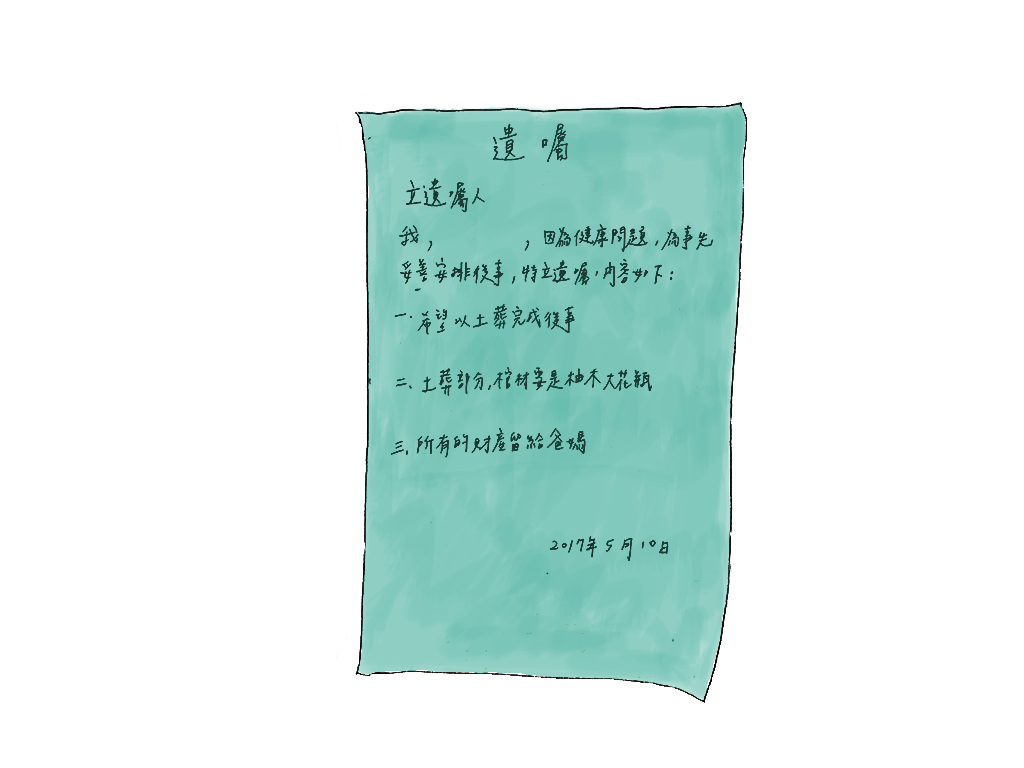 遺囑
立遺囑人
我, , 因為健康問題,為事先
妥善安排後事,特立遺囑,內容如下:
一.希望以土葬完成後事
二、土葬部分,棺材要是柚木大花瓶
三,所有的財產留給爸媽
2017年5月10日